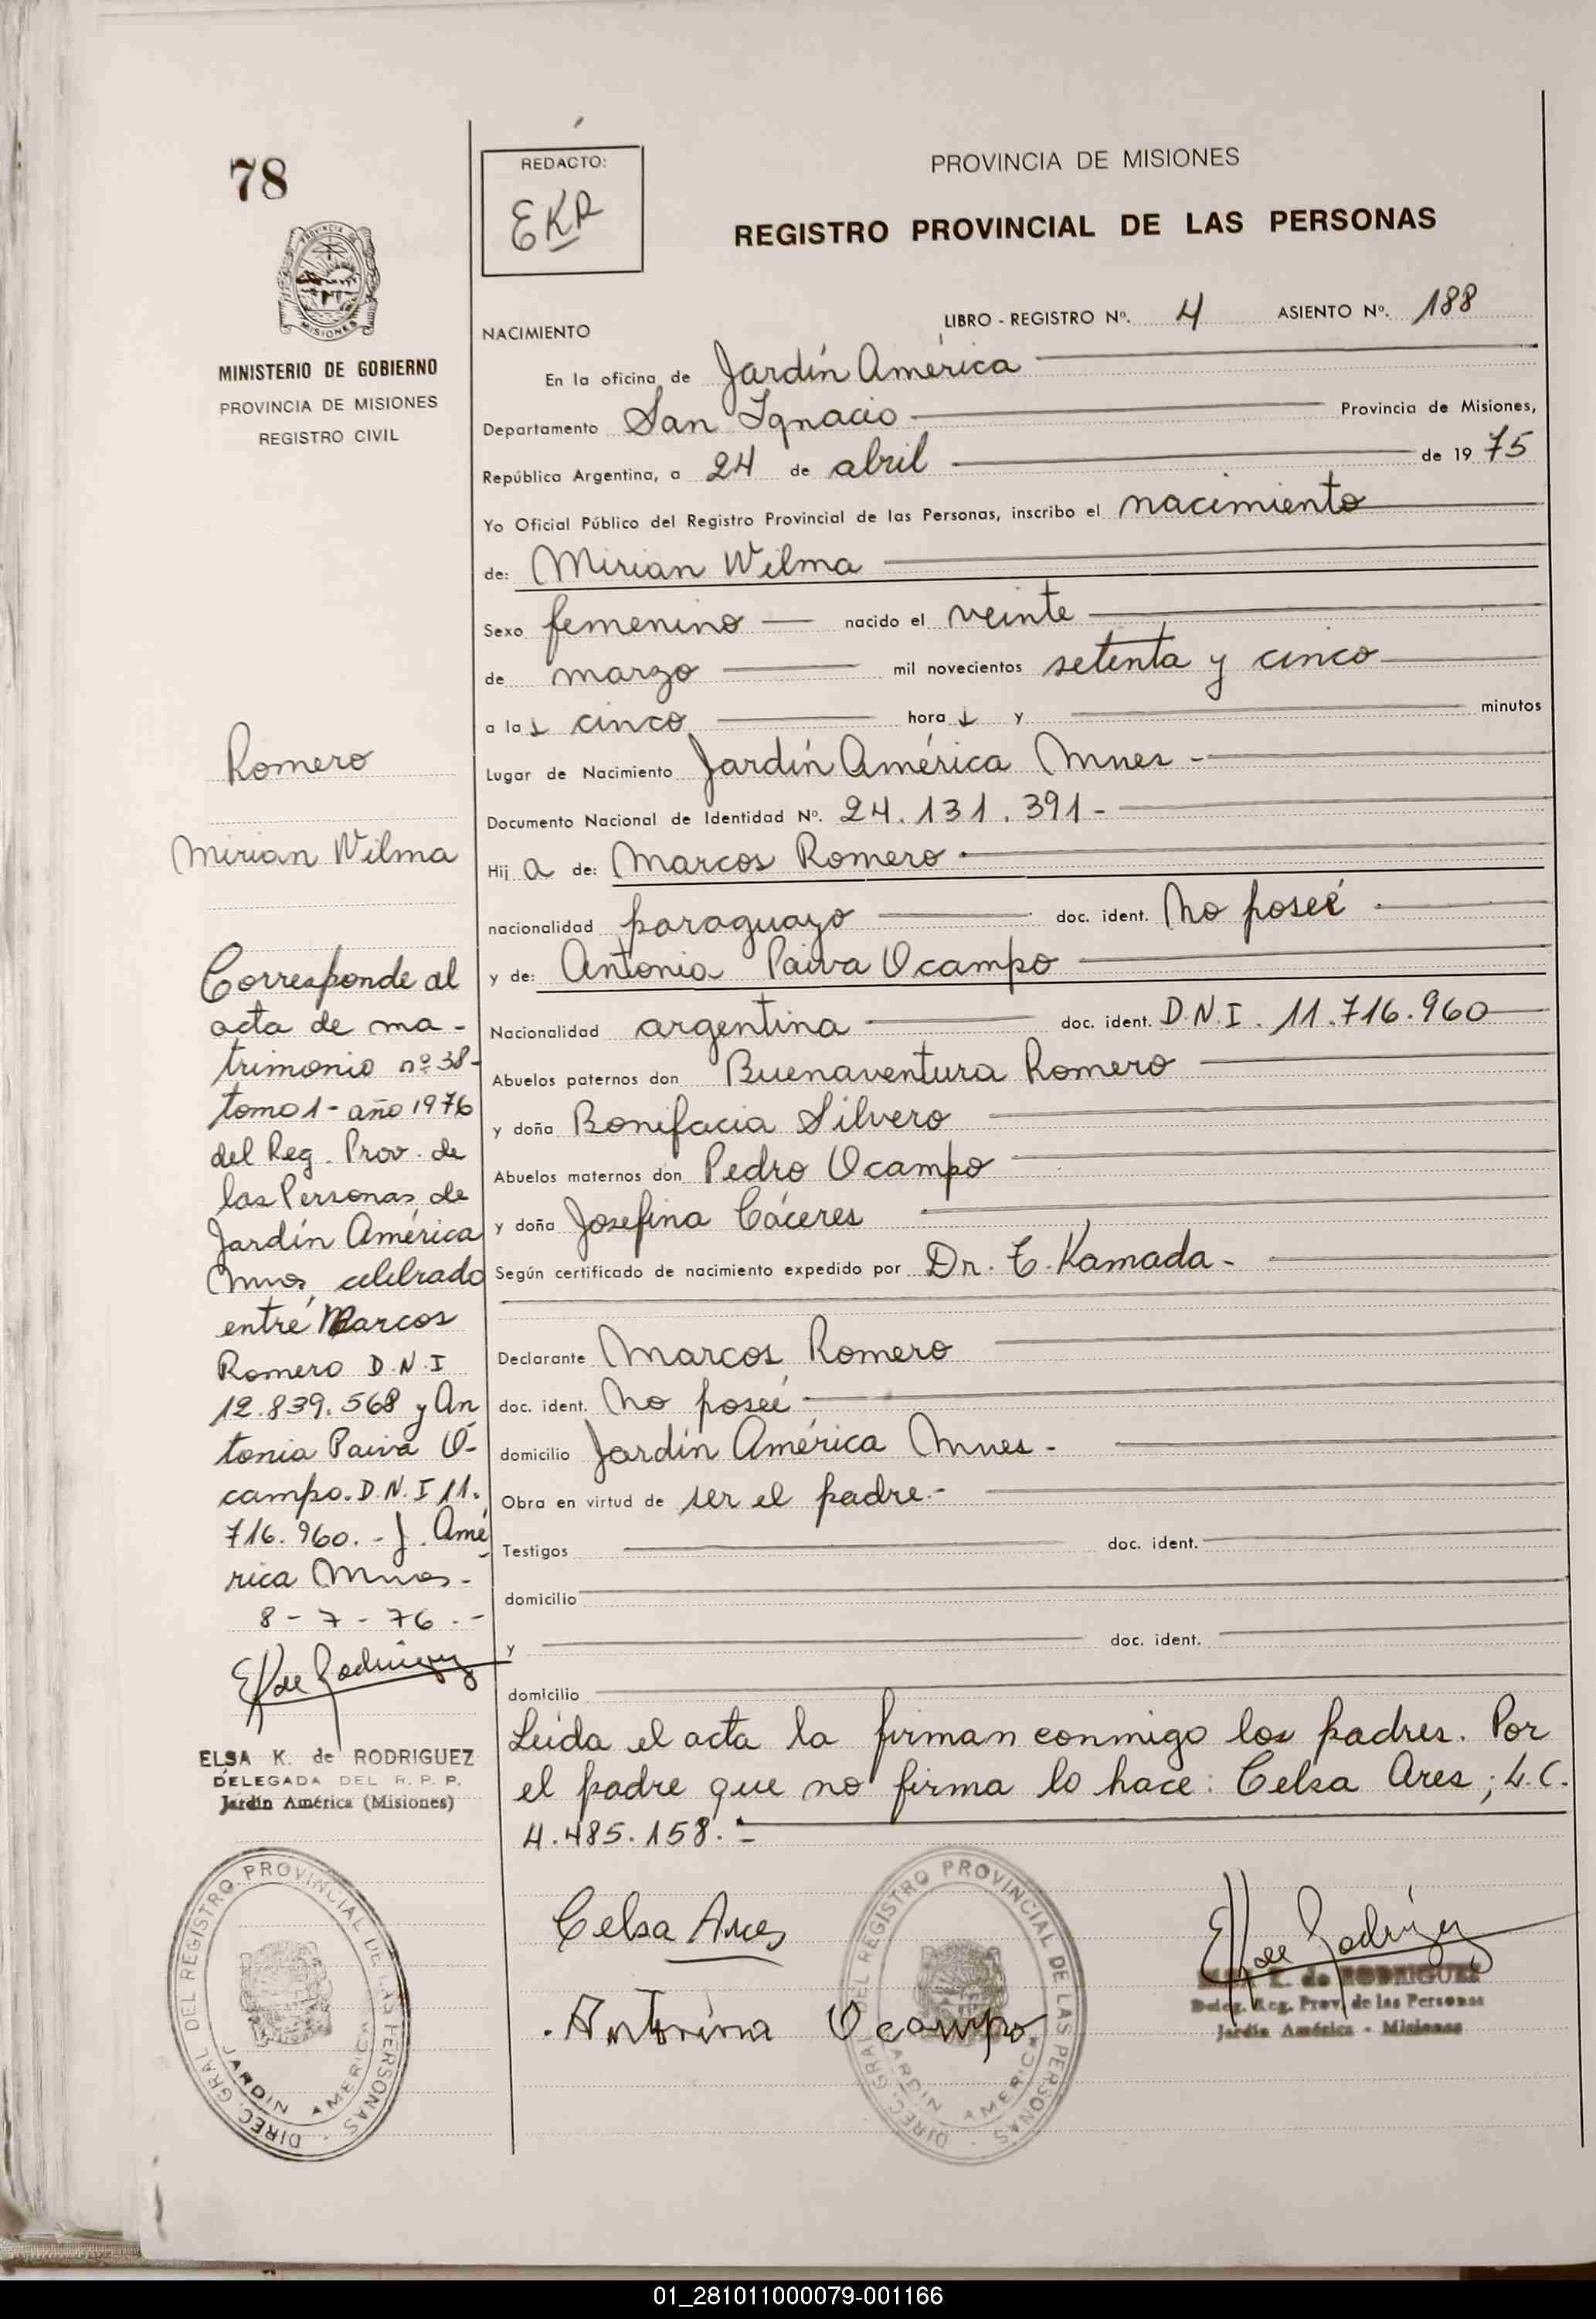 78
REDACTO:
EKR
PROVINCIA DE MISIONES
REGISTRO PROVINCIAL DE LAS PERSONAS
PROVINCIA DE
MISIONES
MINISTERIO DE GOBIERNO
PROVINCIA DE MISIONES
REGISTRO CIVIL
NACIMIENTO
LIBRO - REGISTRO Nº. 4 ASIENTO Nº. 188
En la oficina de Jardín América
Departamento San Ignacio Provincia de Misiones,
República Argentina, a 24 de abril de 19 75
Yo Oficial Público del Registro Provincial de las Personas, inscribo el nacimiento
de: Mirian Wilma
Sexo femenino nacido el veinte
de marzo mil novecientos setenta y cinco
a las cinco horas y minutos
Lugar de Nacimiento Jardín América Mnes -
Documento Nacional de Identidad Nº. 24.131.391-
Hij a de: Marcos Romero
nacionalidad paraguayo doc. ident. No poseé
y de: Antonia Paiva Ocampo
Nacionalidad argentina doc. ident. D.N.I. 11.716.960
Abuelos paternos don Buenaventura Romero
y doña Bonifacia Silvero
Abuelos maternos don Pedro Ocampo
y doña Josefina Cáceres
Según certificado de nacimiento expedido por Dr. T. Kamada -
Declarante Marcos Romero
doc. ident. No poseé
domicilio Jardín América Mnes -
Obra en virtud de ser el padre.-
Testigos doc. ident.
domicilio
y doc. ident.
domicilio
Leída el acta la firman conmigo los padres. Por
el padre que no firma lo hace: Celsa Ares; L.C.
4.485.158.-
Celsa Ares
Antonina Ocampo
EK de Rodriguez
ELSA K. de RODRIGUEZ
Deleg. Reg. Prov. de las Personas
Jardín América - Misiones
DIREC. GRAL DEL REGISTRO PROVINCIAL DE LAS PERSONAS
JARDIN AMERICA
Romero
Mirian Wilma
Corresponde al
acta de ma-
trimonio nº 38-
tomo 1 - año 1976
del Reg. Prov. de
las Personas de
Jardín América
Mnes, celebrado
entre Marcos
Romero D.N.I
12.839.568 y An
tonia Paiva O-
campo. D.N.I 11.
716.960.- J. Amé
rica Mnes-
8-7-76.-
EK de Rodriguez
ELSA K. de RODRIGUEZ
DELEGADA DEL R. P. P.
Jardín América (Misiones)
DIREC. GRAL DEL REGISTRO PROVINCIAL DE LAS PERSONAS
JARDIN AMERICA
01_281011000079-001166